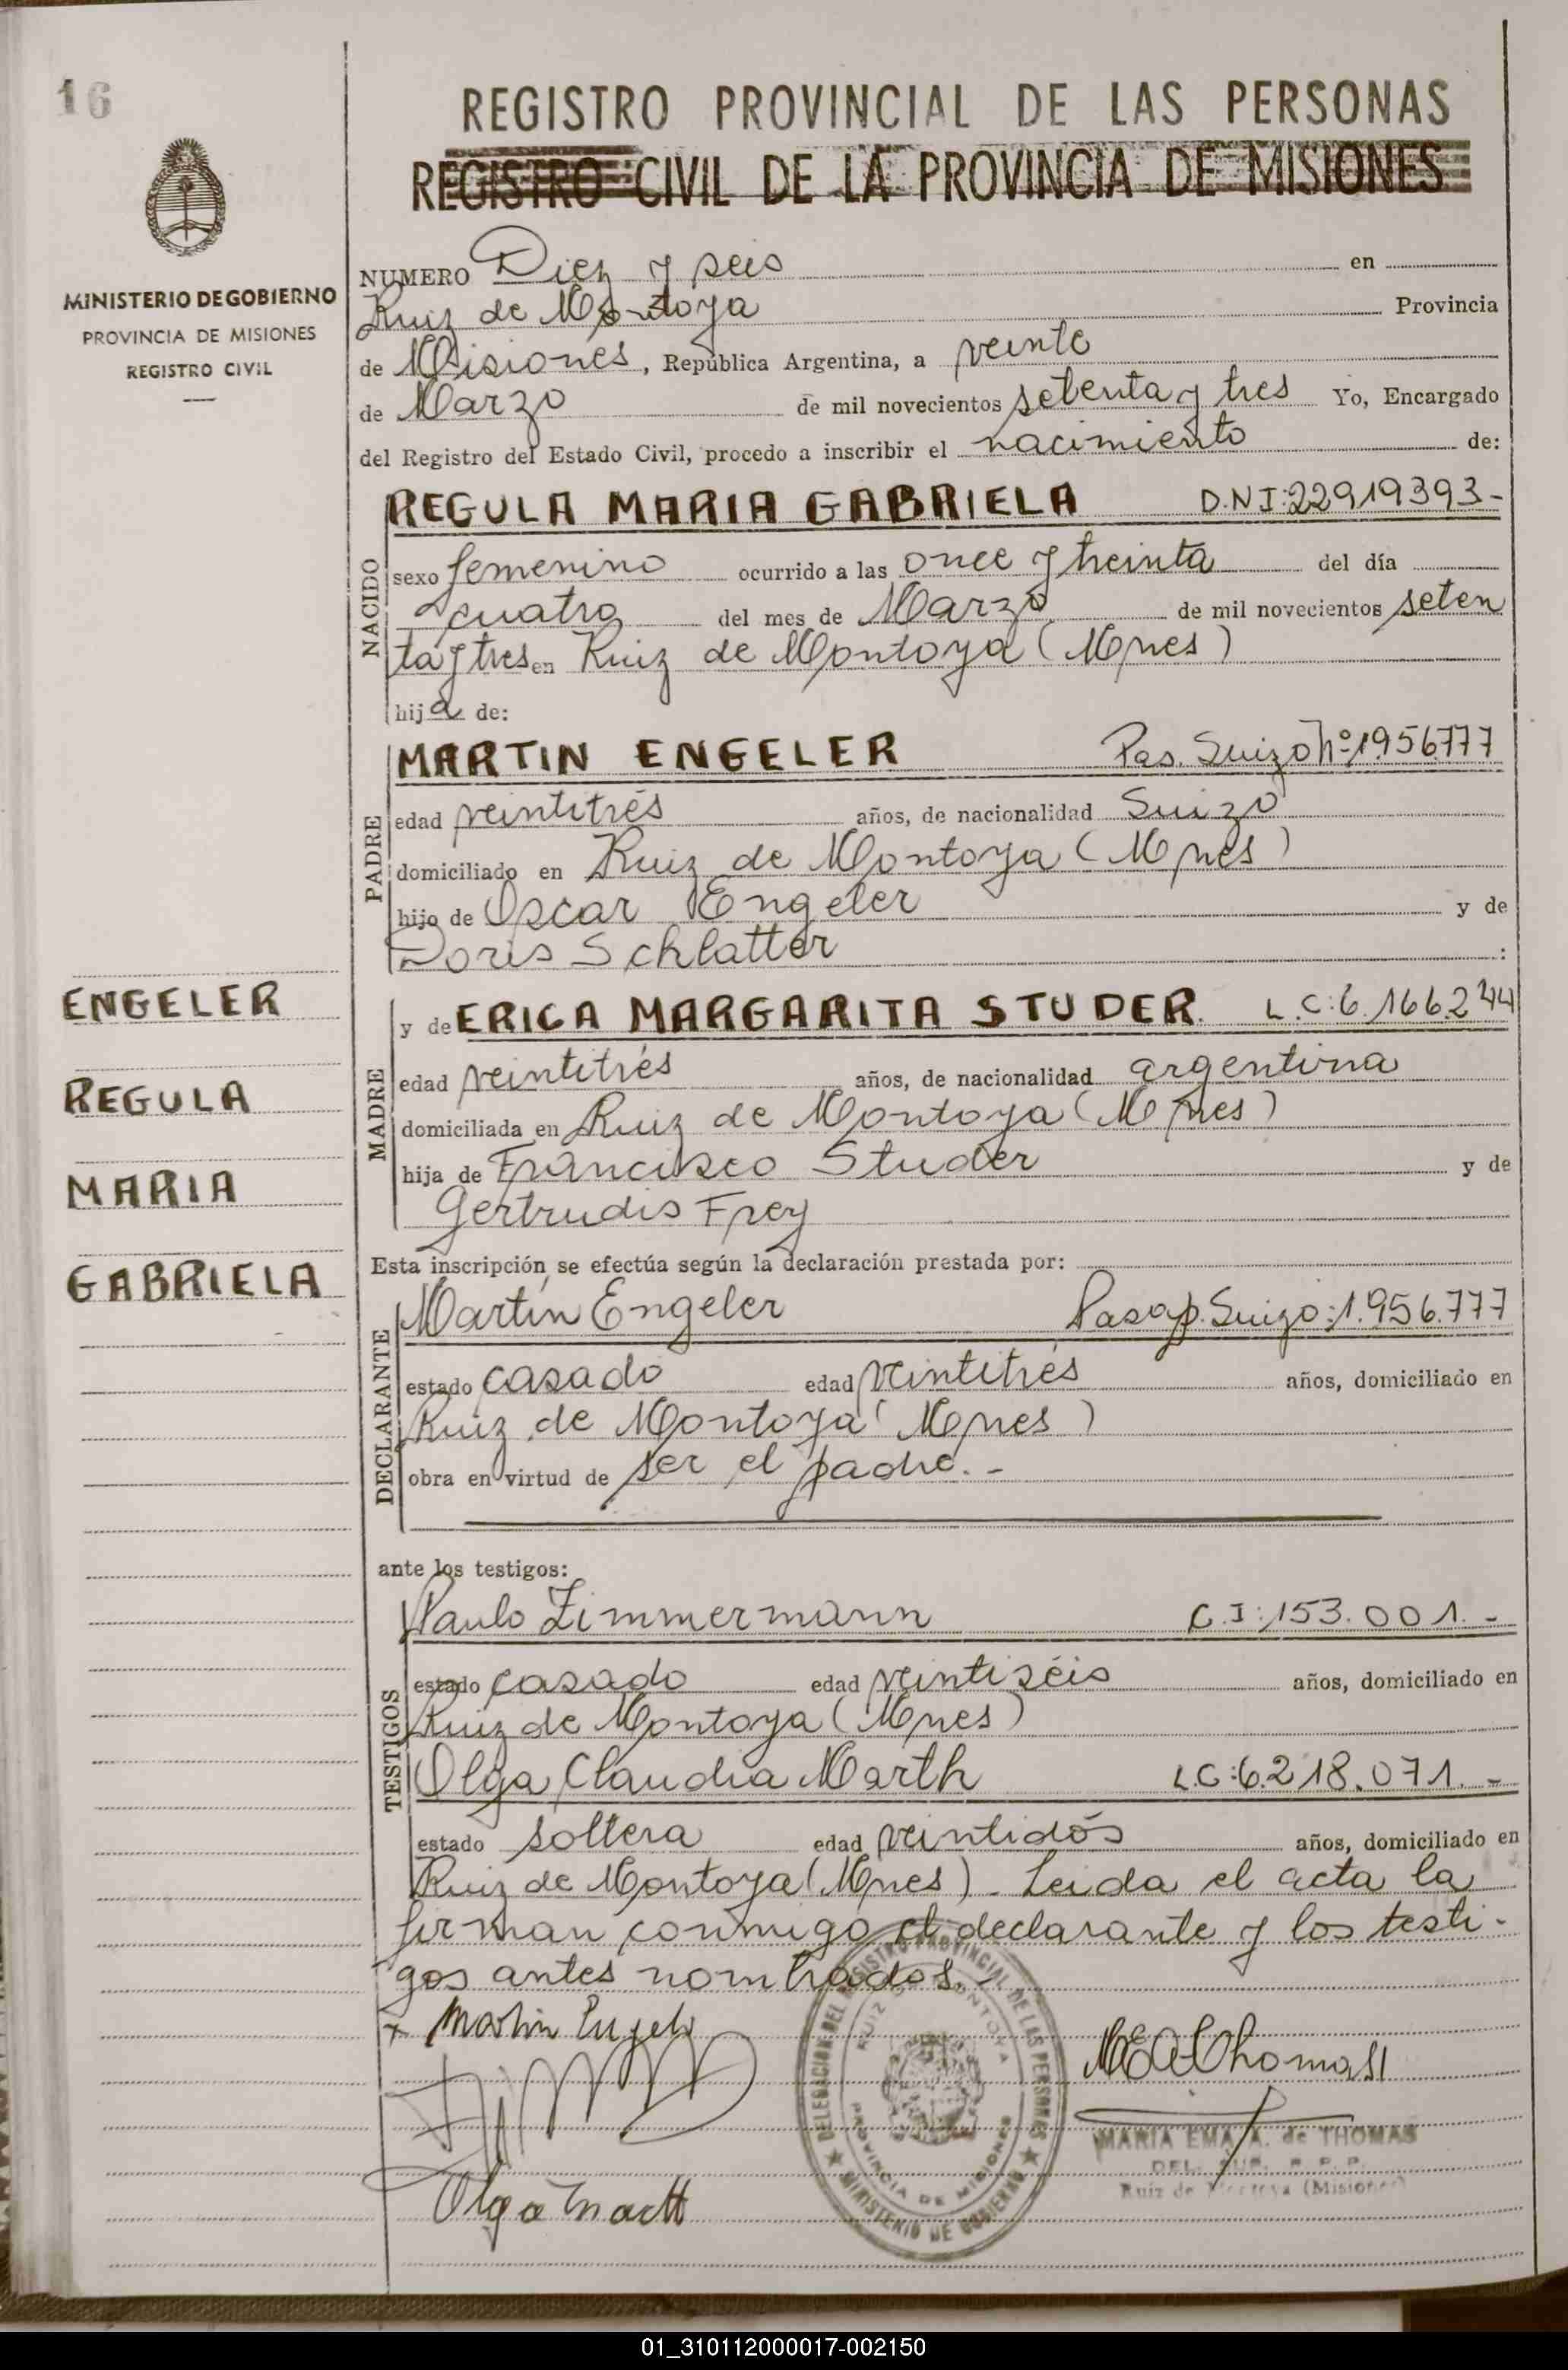 16
REGISTRO PROVINCIAL DE LAS PERSONAS
REGISTRO CIVIL DE LA PROVINCIA DE MISIONES
MINISTERIO DE GOBIERNO
PROVINCIA DE MISIONES
REGISTRO CIVIL
NUMERO Diez y seis en
Ruiz de Montoya Provincia
de Misiones, República Argentina, a veinte
de Marzo de mil novecientos setenta y tres Yo, Encargado
del Registro del Estado Civil, procedo a inscribir el nacimiento de:
NACIDO
REGULA MARIA GABRIELA D.N.I:22919393-
sexo femenino ocurrido a las once y treinta del día
cuatro del mes de Marzo de mil novecientos seten
ta y tres en Ruiz de Montoya (Mnes)
hija de:
PADRE
MARTIN ENGELER Pas. Suizo Nº:1956777
edad veintitrés años, de nacionalidad Suizo
domiciliado en Ruiz de Montoya (Mnes)
hijo de Oscar Engeler y de
Doris Schlatter :
ENGELER
REGULA
MARIA
GABRIELA
MADRE
y de ERICA MARGARITA STUDER L.C:6.166.244
edad veintitrés años, de nacionalidad argentina
domiciliada en Ruiz de Montoya (Mnes)
hija de Francisco Studer y de
Gertrudis Frey
Esta inscripción se efectúa según la declaración prestada por:
DECLARANTE
Martín Engeler Pasap. Suizo:1.956.777
estado casado edad veintitrés años, domiciliado en
Ruiz de Montoya (Mnes)
obra en virtud de ser el padre.-
ante los testigos:
TESTIGOS
Paulo Zimmermann C.I:153.001.-
estado casado edad veintiséis años, domiciliado en
Ruiz de Montoya (Mnes)
Olga Claudia Marth L.C:6.218.071.-
estado soltera edad veintidós años, domiciliado en
Ruiz de Montoya (Mnes). Leida el acta la
firman conmigo el declarante y los testi-
gos antes nombrados.-
x Martin Engeler
MEAThomas
DELEGACION DEL REGISTRO PROVINCIAL DE LAS PERSONAS
RUIZ DE MONTOYA
PROVINCIA DE MISIONES
★ MINISTERIO DE GOBIERNO ★
MARIA EMA A. de THOMAS
DEL. SUP. R.P.P.
Ruiz de Montoya (Misiones)
Olga Marth
01_310112000017-002150